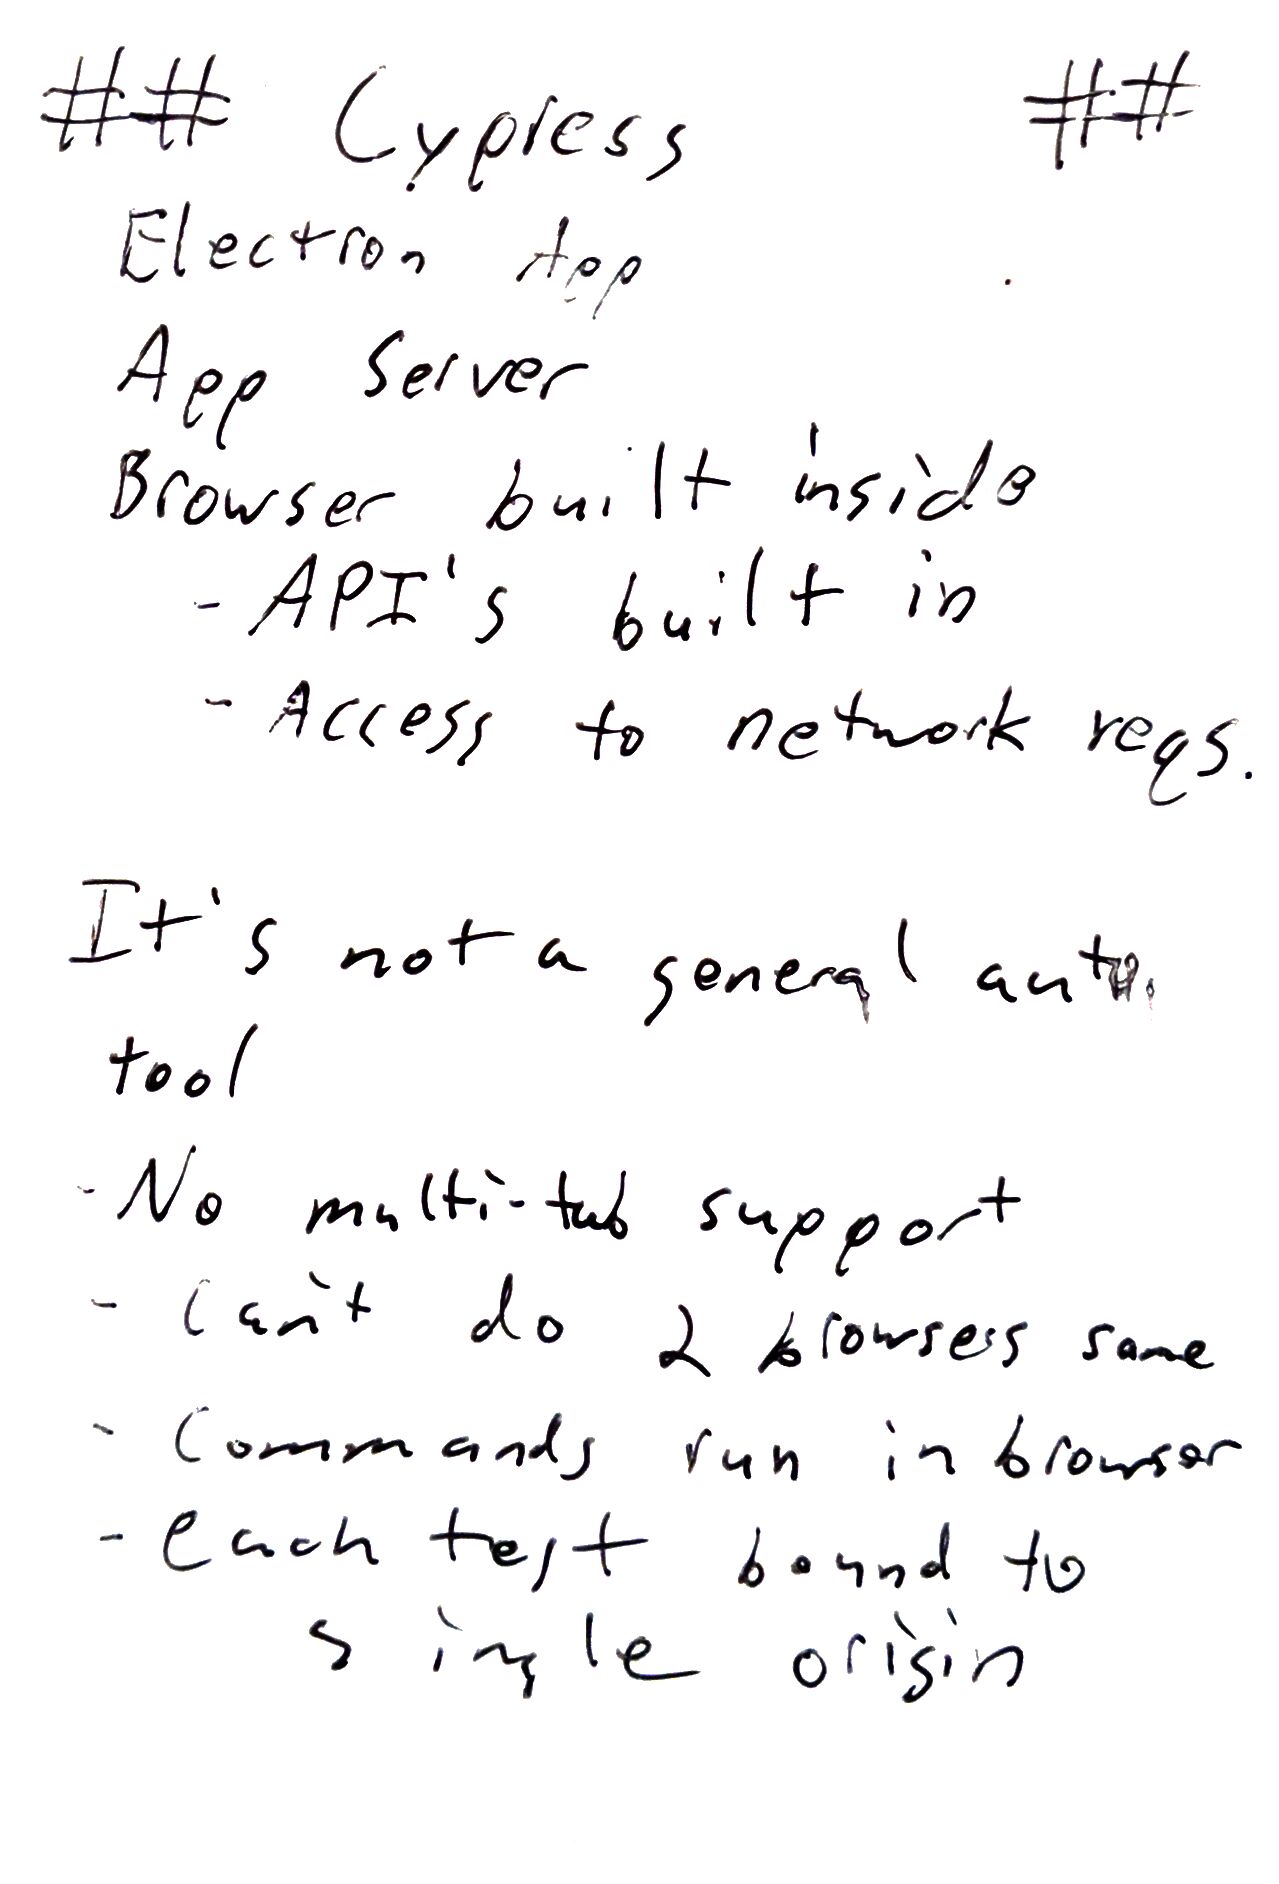 ## Cypress ##
Electron App
App Server
Browser built inside
- API's built in
- Access to network reqs.
It's not a general auto.
tool
- No multi-tab support
- Can't do 2 browsers same
- Commands run in browser
- each test bound to
single origin